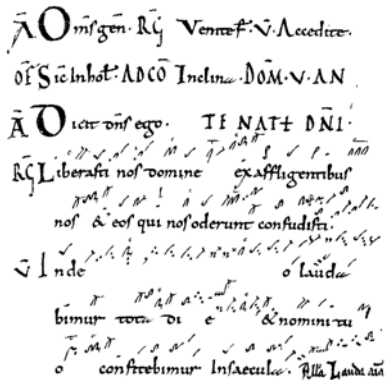 Ā Om̄s gen̄. R̄G Venite f̄. V̄. Accedite.
OF̄ Sic In hol. AD CŌ Inclina. DOM̄. V. AN
Ā Dicit dn̄s ego. TE NAT DN̄I.
R̄G Liberasti nos domine ex affligentibus
nos & eos qui nos oderunt confudisti.
V̄ In de o lauda
bimur tota di e & nomini tu
o confitebimur In saecula. All̄a Lauda an̄a